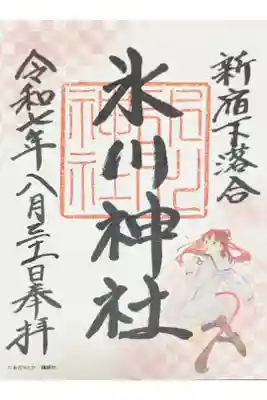 新宿下落合
氷川神社
氷川
神社
令和七年八月三十一日奉拝
講談社